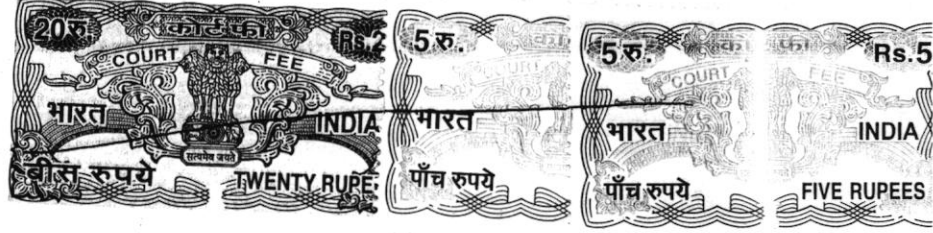 20 रु. कोर्ट फी Rs.2
COURT FEE
भारत INDIA
सत्यमेव जयते
बीस रुपये TWENTY RUPE
5 रु.
भारत
पाँच रुपये
5 रु. Rs.5
COURT FEE
भारत INDIA
पाँच रुपये FIVE RUPEES